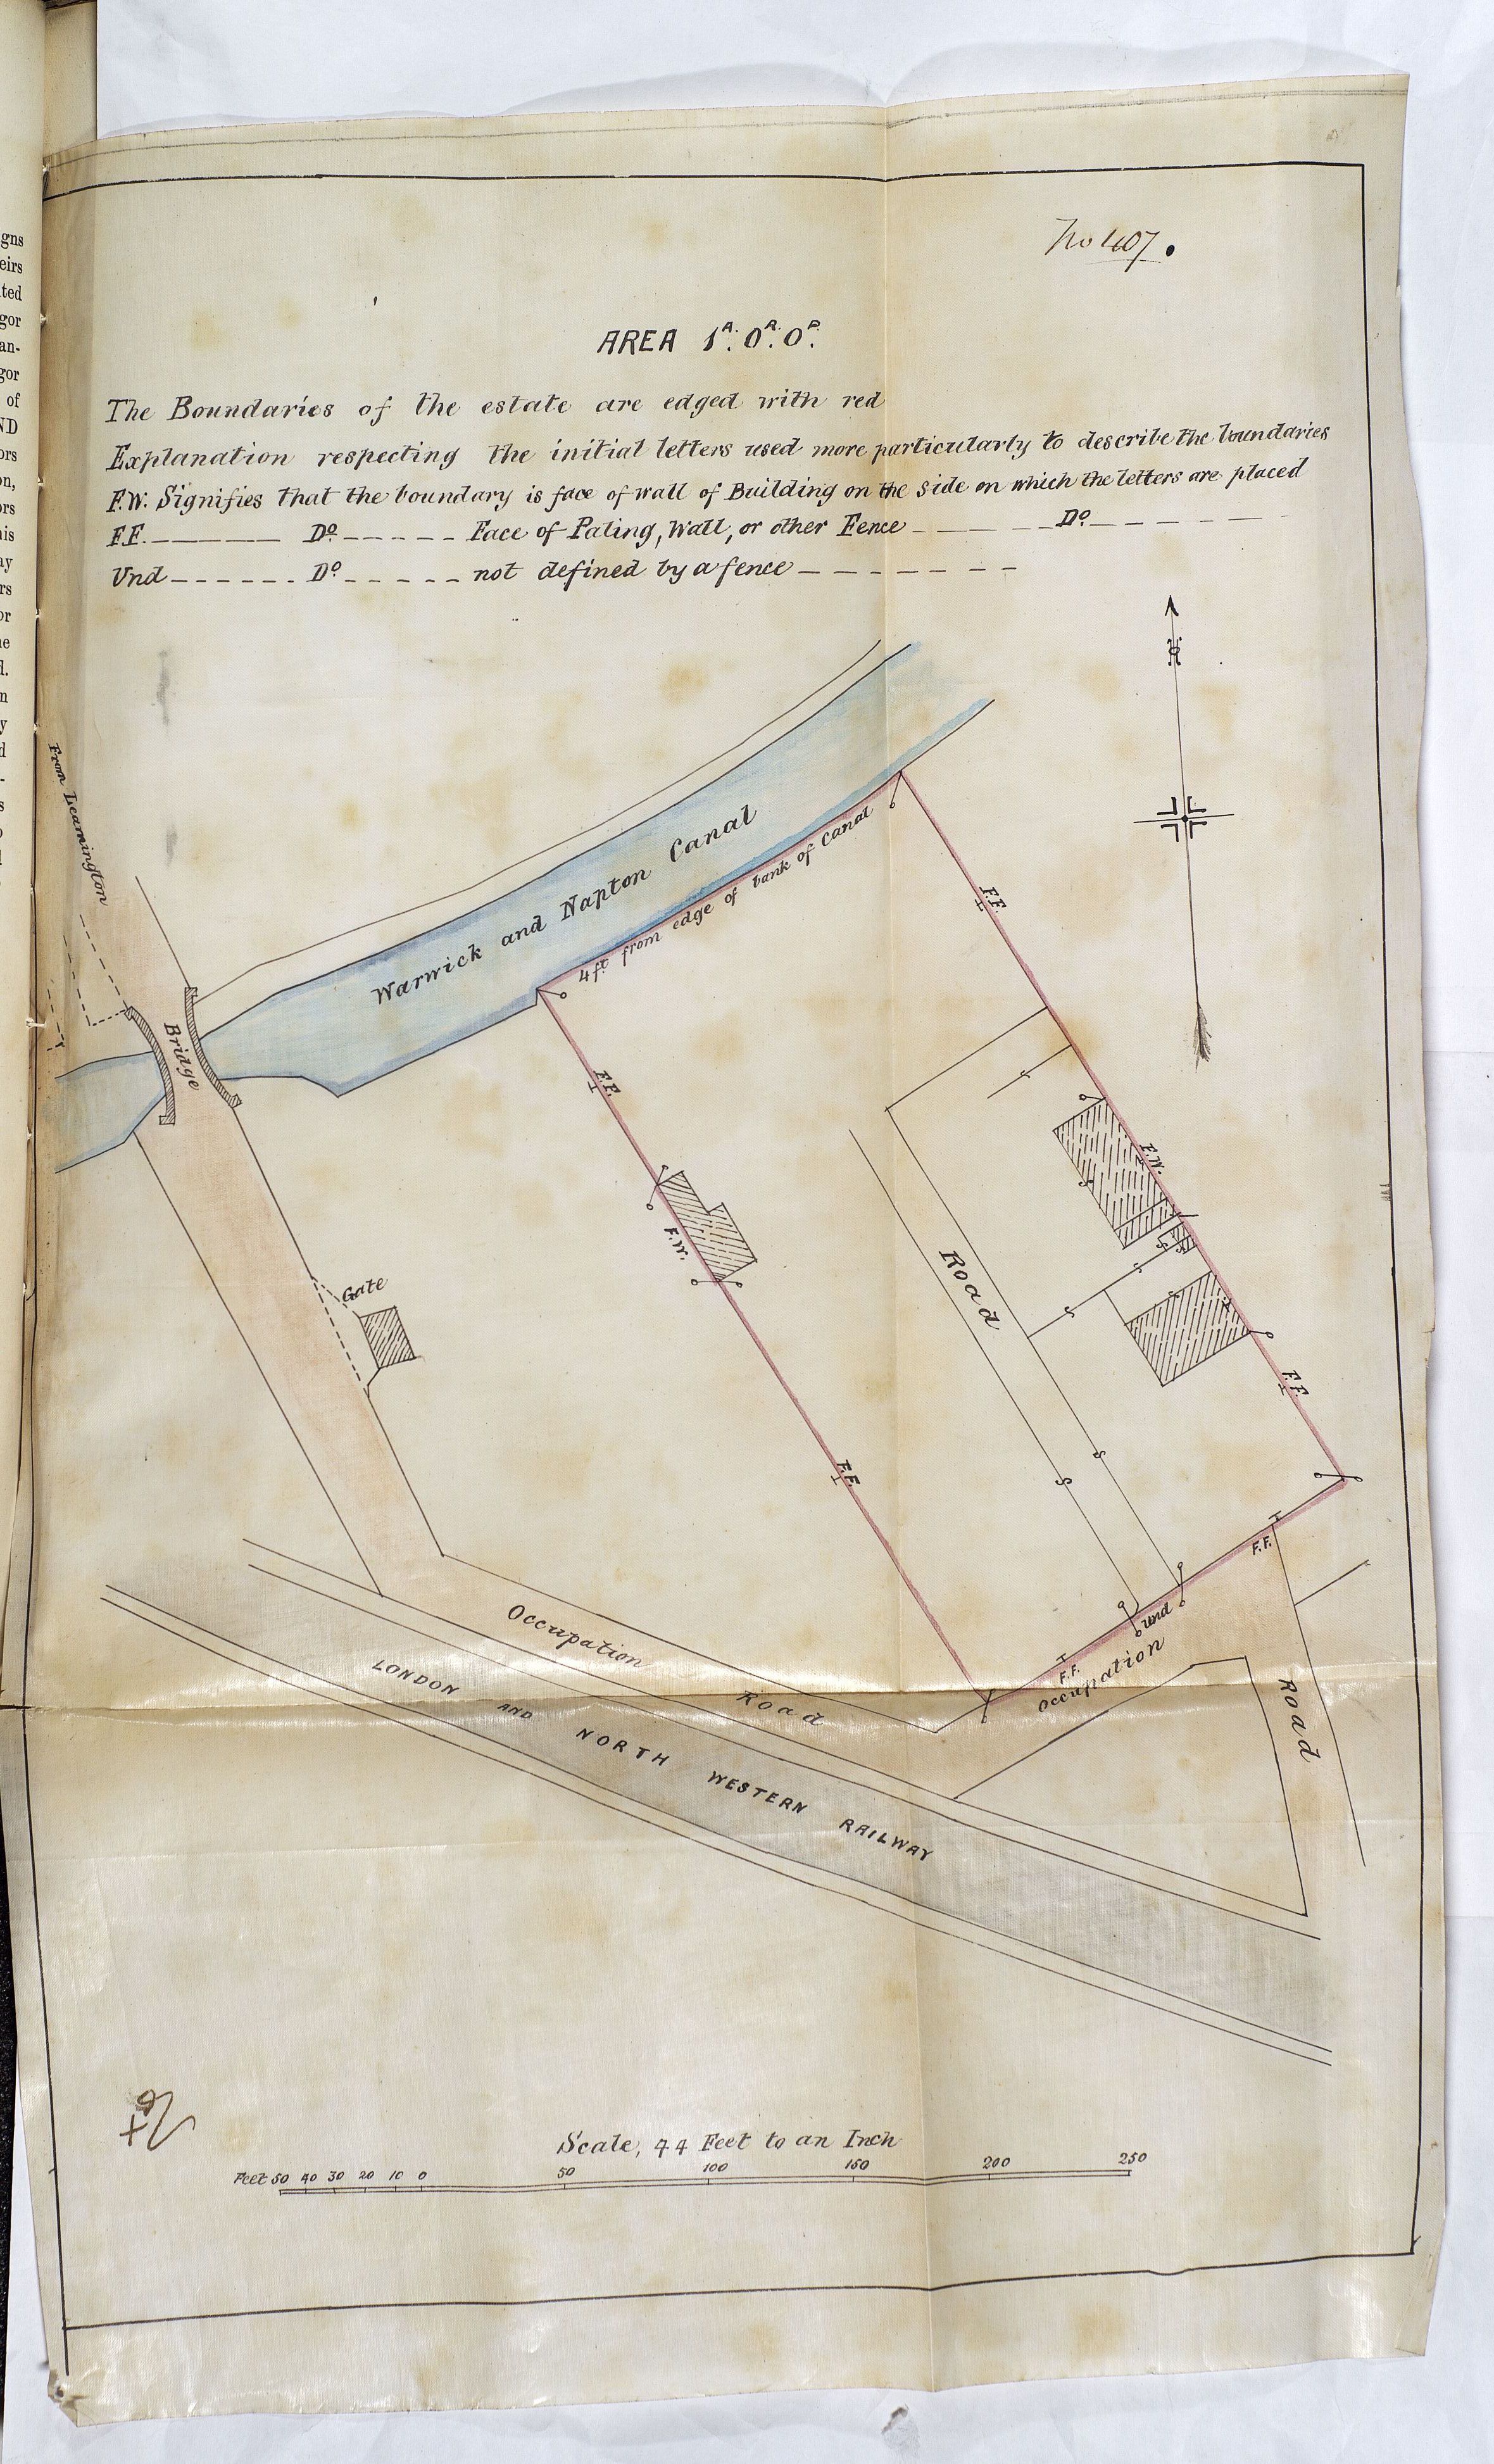 gns
eirs
ted
gor
an-
gor
of
ND
ors
on,
ors
his
ay
rs
or
he
d.
n
y
d
-
s
No 407.
AREA 1A. 0R. 0P.
The Boundaries of the estate are edged with red
Explanation respecting the initial letters used more particularly to describe the boundaries
F.W. Signifies that the boundary is face of wall of Building on the side on which the letters are placed
F.F. Do Face of Paling, Wall, or other Fence Do
Und Do not defined by a fence
N
From Leamington
Warwick and Napton Canal
4ft from edge of bank of Canal
F.F.
Bridge
F.F.
F.W.
F.W.
Road
Gate
F.F.
F.F.
S
S
F.F.
Und
F.F.
Occupation
Road
Occupation
Road
LONDON AND NORTH WESTERN RAILWAY
Scale, 44 Feet to an Inch
Feet 50 40 30 20 10 0 50 100 150 200 250